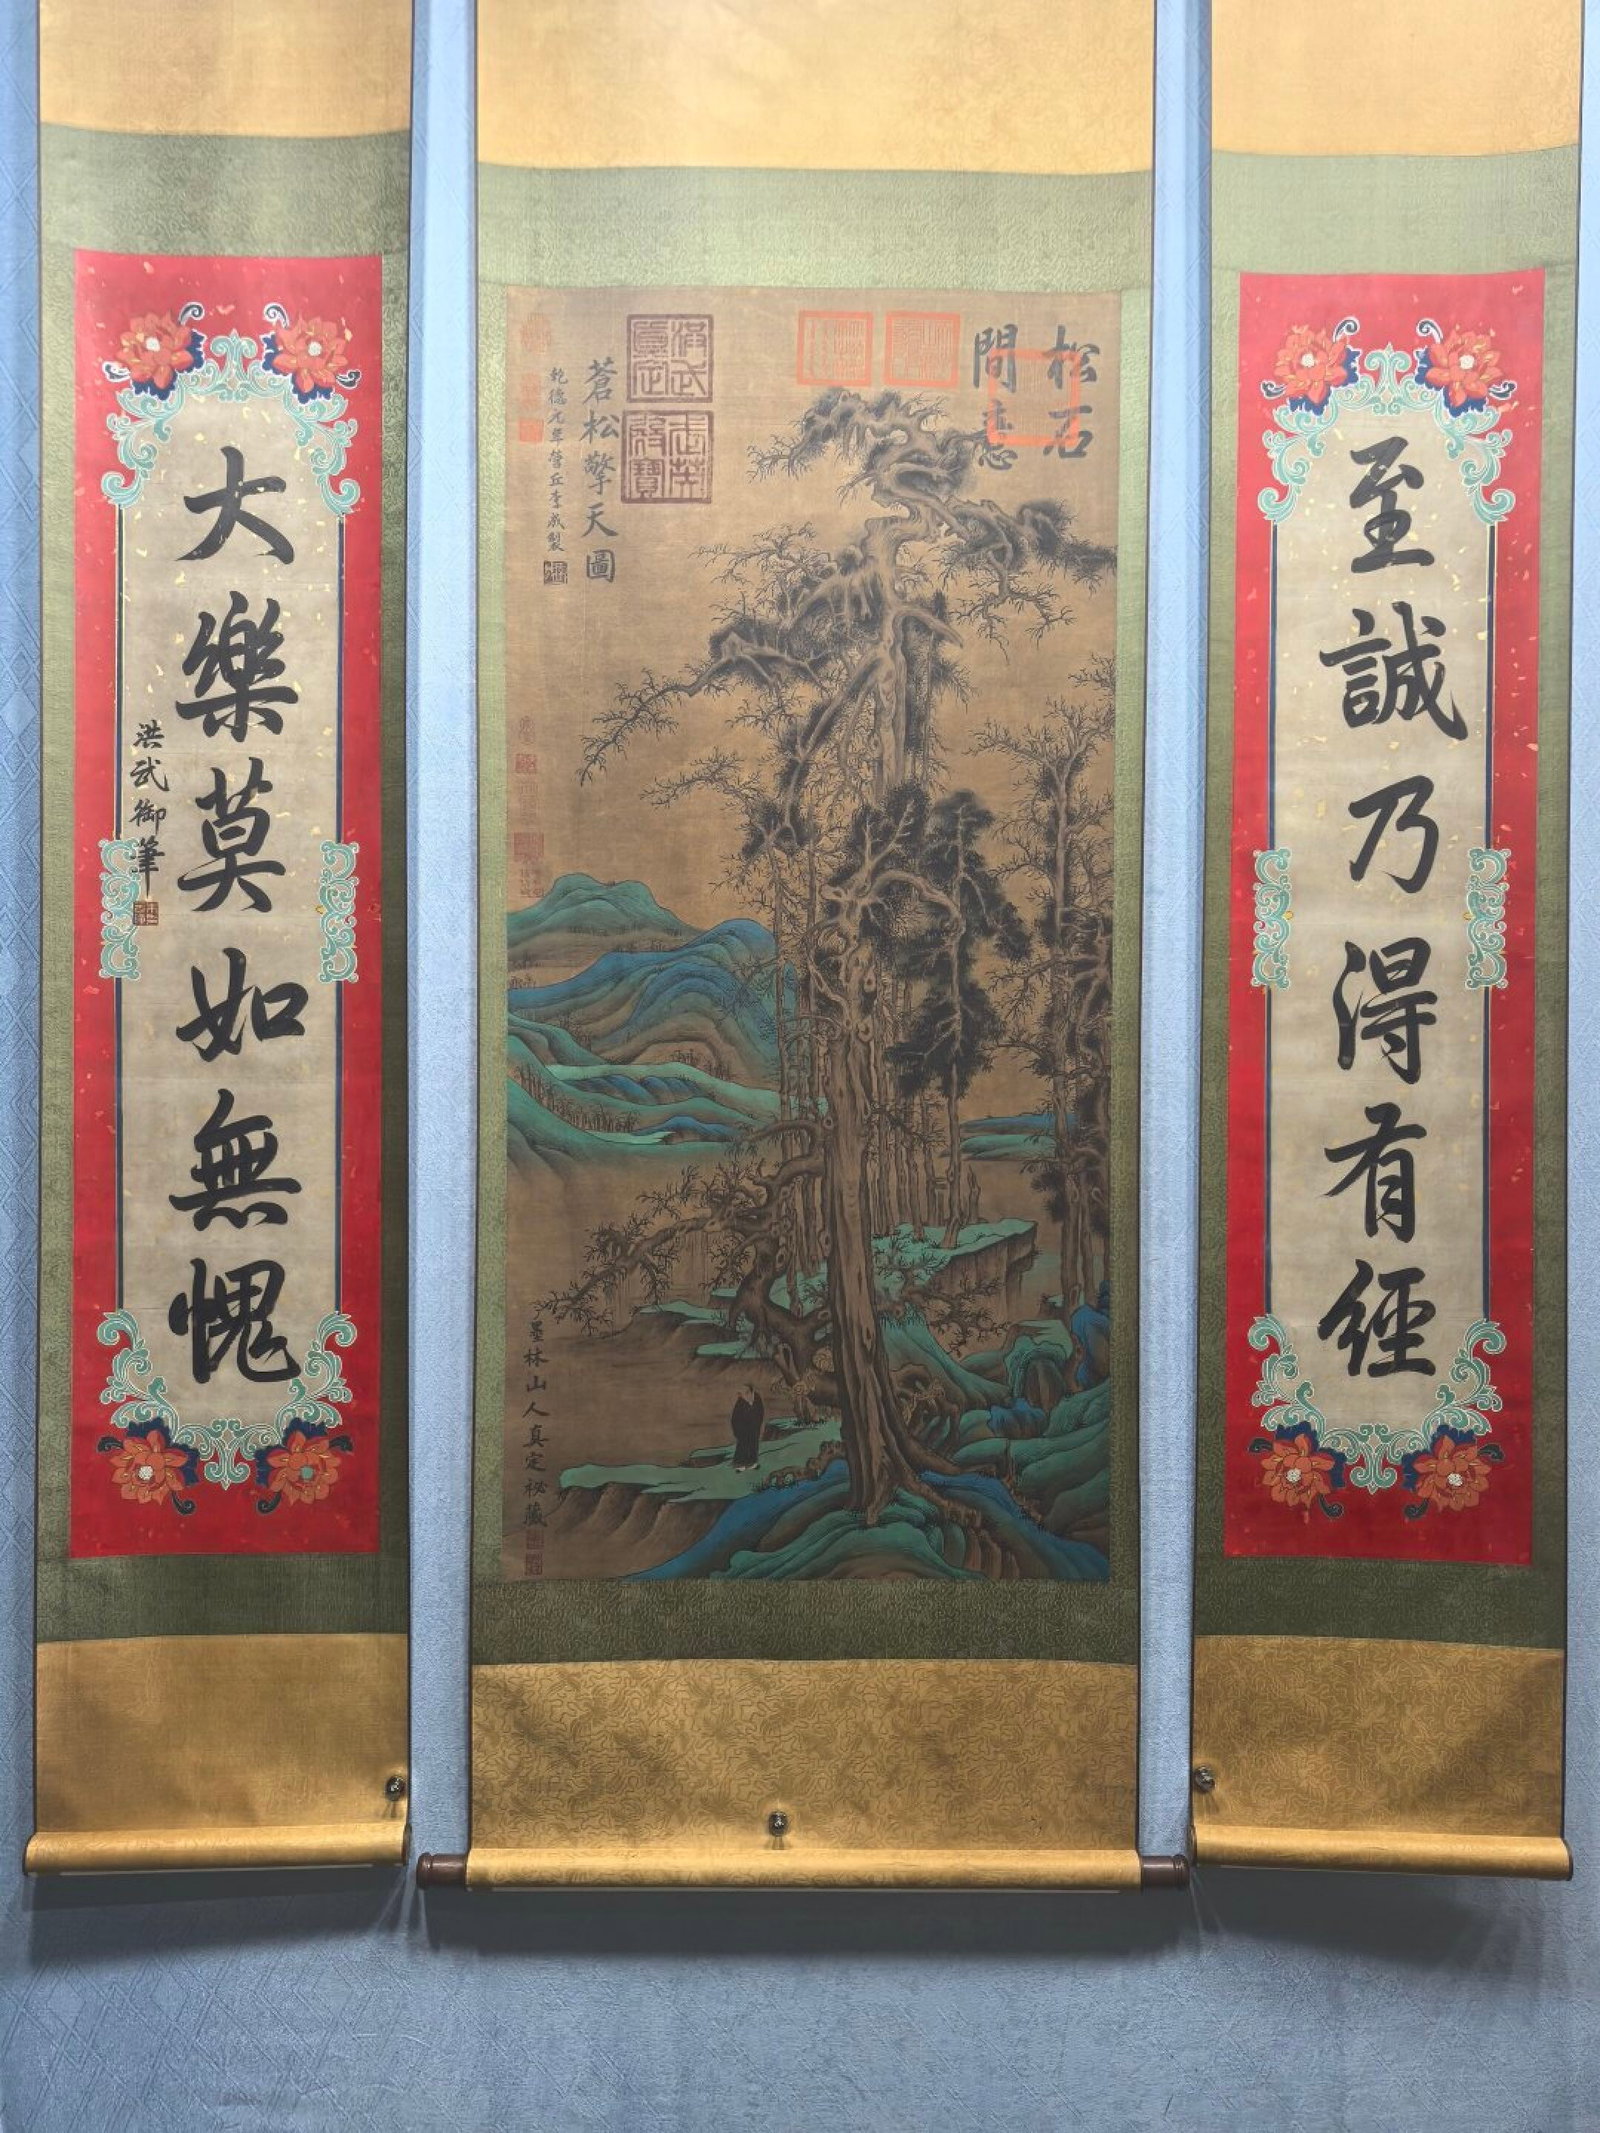 至誠乃得有經
松石
間意
蒼松擎天圖
乾德九年營丘李成製
墨林山人真定祕藏
大樂莫如無愧
洪武御筆